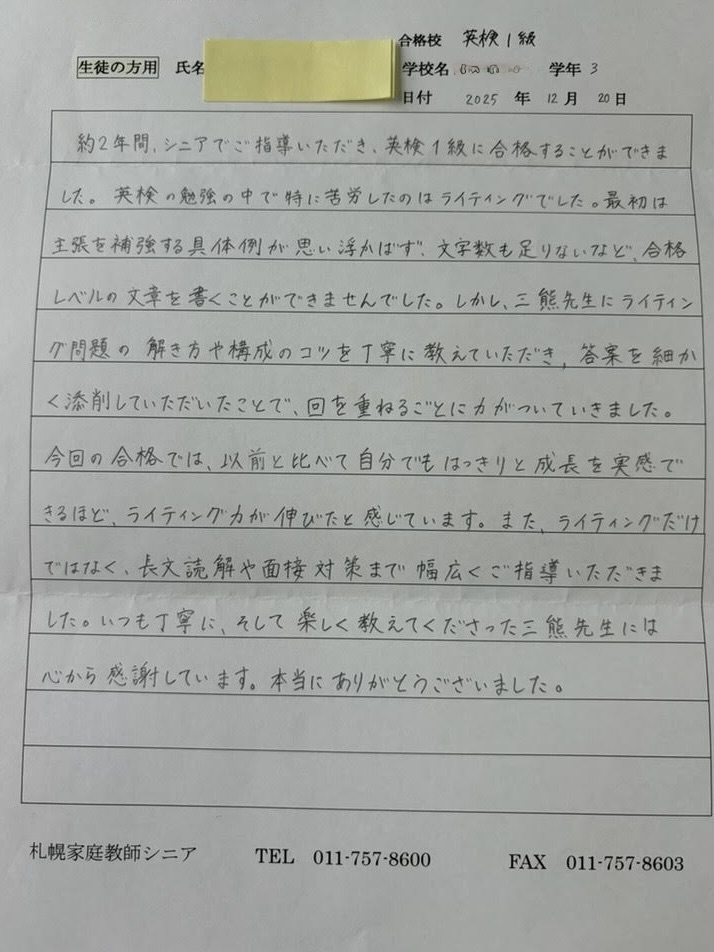 合格校 英検1級
生徒の方用 氏名 学校名 学年 3
日付 2025 年 12 月 20 日
約2年間、シニアでご指導いただき、英検1級に合格することができま
した。英検の勉強の中で特に苦労したのはライティングでした。最初は
主張を補強する具体例が思い浮かばず、文字数も足りないなど、合格
レベルの文章を書くことができませんでした。しかし、三熊先生にライティン
グ問題の解き方や構成のコツを丁寧に教えていただき、答案を細か
く添削していただいたことで、回を重ねるごとに力がついていきました。
今回の合格では、以前と比べて自分でもはっきりと成長を実感で
きるほど、ライティング力が伸びたと感じています。また、ライティングだけ
ではなく、長文読解や面接対策まで幅広くご指導いただきま
した。いつも丁寧に、そして楽しく教えてくださった三熊先生には
心から感謝しています。本当にありがとうございました。
札幌家庭教師シニア TEL 011-757-8600 FAX 011-757-8603